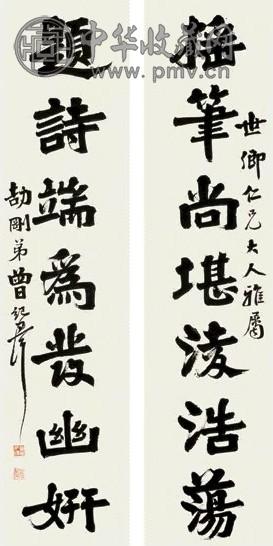 中华收藏网
www.pmv.cn
搖筆尚堪淩浩蕩
世卿仁兄大人雅屬
題詩端爲發幽妍
劼剛弟曾紀澤